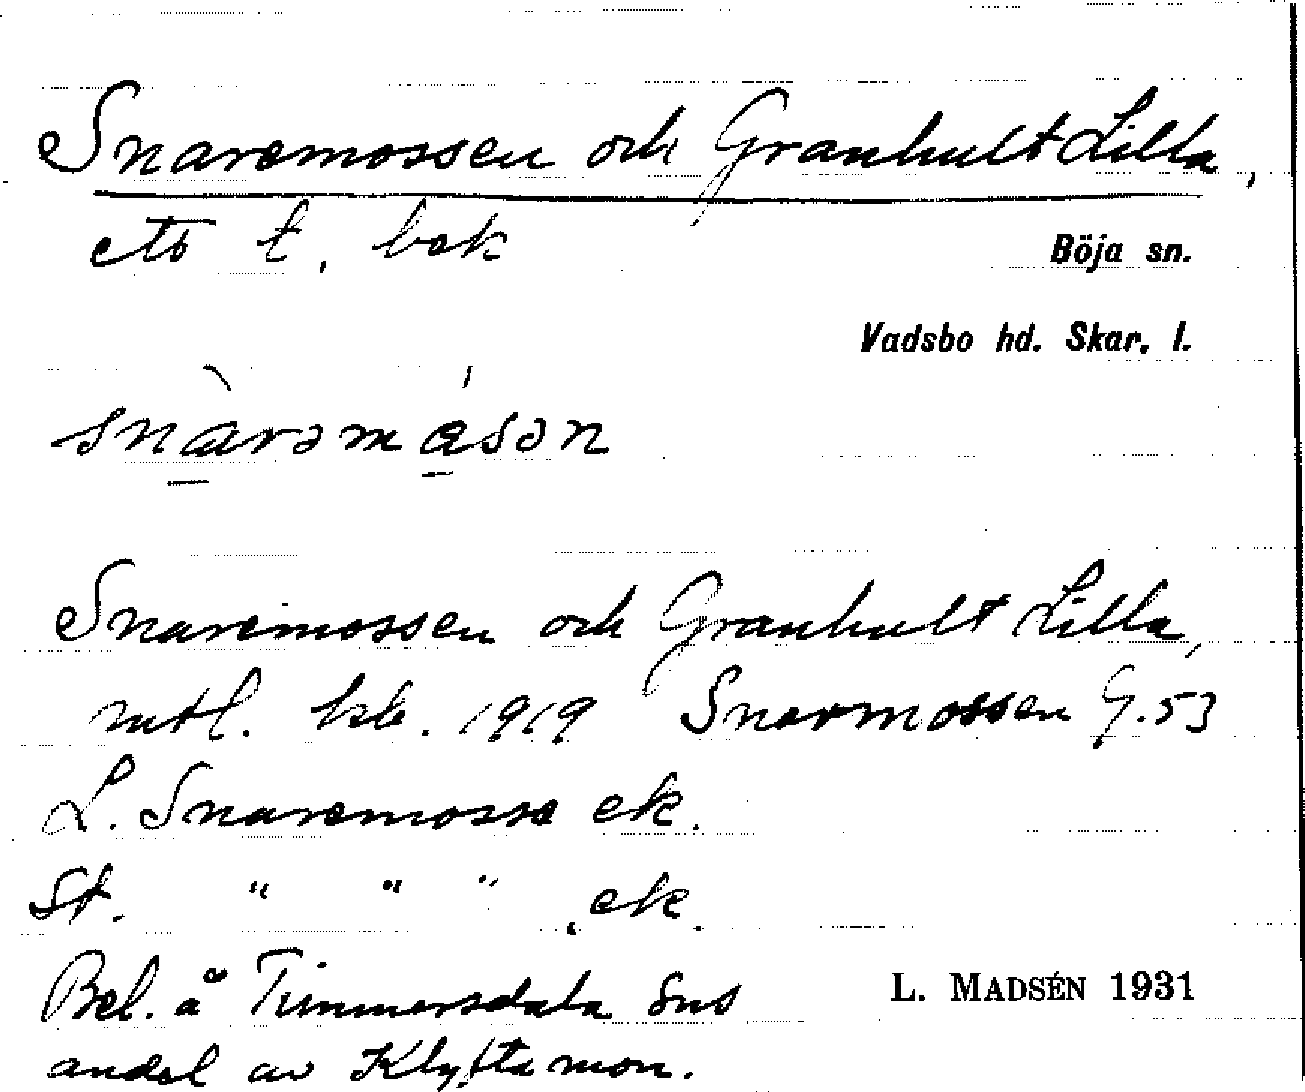 Snaremossen och Granhult Lilla,
ett t. bek
Böja sn.
Vadsbo hd. Skar. l.
snàrəmásən
Snaremossen och Granhult Lilla,
mtl. kb. 1919 Snarmossen G. 53
L. Snaremosse ek.
St. " " " ek.
Bel. å Timmersdala sns
andel av Klyftamon.
L. MADSÉN 1931